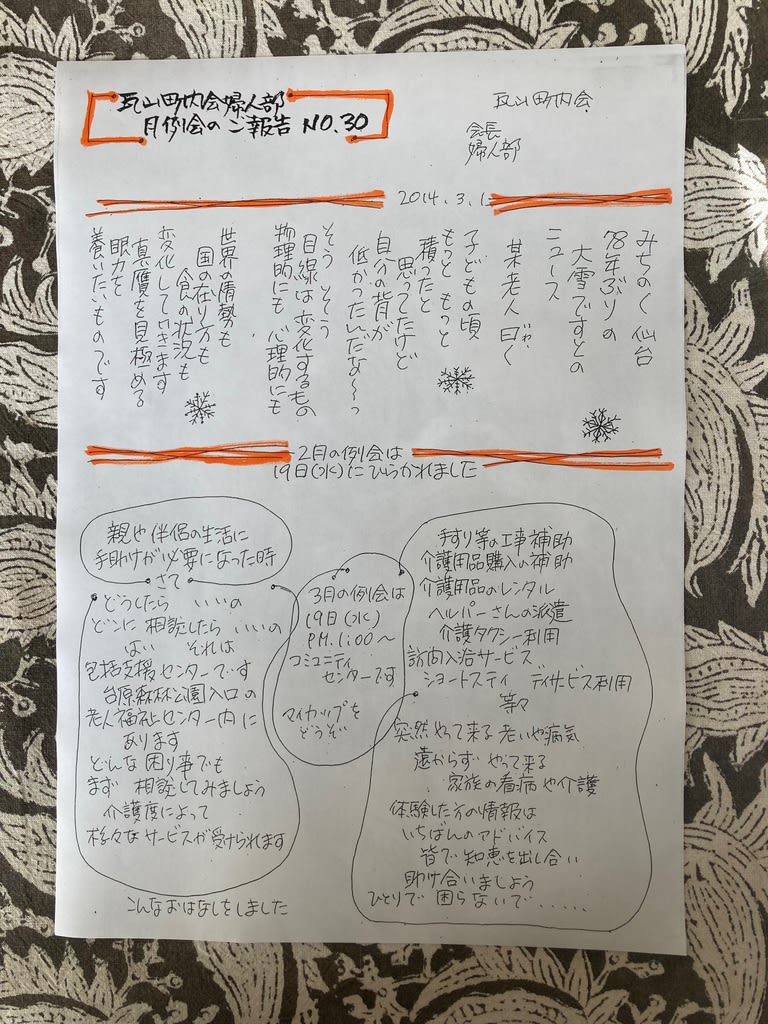 瓦山町内会婦人部
月例会のご報告 NO.30
瓦山町内会
会長
婦人部
2014.3.1
みちのく 仙台
78年ぶりの
大雪ですとの
ニュース
某老人曰く
いわ
子どもの頃
もっともっと
積ったと
思ってたけど
自分の背が
低かったんだな〜っ
そうそう
目線は変化するもの
物理的にも 心理的にも
世界の情勢も
国の在り方も
食の状況も
変化していきます
真贋を見極める
眼力を
養いたいものです
2月の例会は
19日(水)にひらかれました
親や伴侶の生活に
手助けが必要になった時
さて
どうしたら いいの
どこに相談したら いいの
はい それは
包括支援センターです
台原森林公園入口の
老人福祉センター内に
あります
どんな困り事でも
まず 相談してみましょう
介護度によって
様々なサービスが受けられます
こんなおはなしをしました
3月の例会は
19日(水)
PM.1:00〜
コミュニティ
センターです
マイカップを
どうぞ
手すり等の工事補助
介護用品購入の補助
介護用品のレンタル
ヘルパーさんの派遣
介護タクシー利用
訪内入浴サービス
ショートスティ デイサービス利用
等々
突然やって来る老いや病気
遠からず やって来る
家族の看病や介護
体験した方の情報は
いちばんのアドバイス
皆で知恵を出し合い
助け合いましょう
ひとりで 困らないで・・・・・